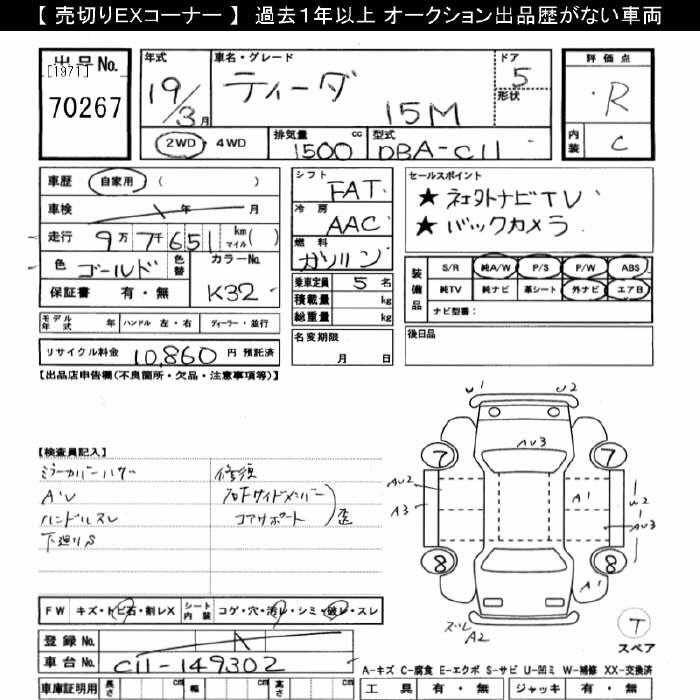 【 売切りEXコーナー 】 過去１年以上 オークション出品歴がない車両
出品No.
[1971]
70267
年式
19/3月
車名・グレード
ティーダ
15M
ドア
5
形状
評価点
R
内装
C
2WD ・ 4WD
排気量
1500 cc
型式
DBA-C11
車歴 自家用 ( )
車検 年 月
走行 9万7千651 km マイル ( )
色 ゴールド 色替
カラーNo.
K32
保証書 有・無
シフト
FAT
冷房
AAC
燃料
ガソリン
乗車定員 5 名
積載量 kg
総重量 kg
セールスポイント
★ ネエクトナビTV
★ バックカメラ
装備品
S/R 純A/W P/S P/W ABS
純TV 純ナビ 革シート 外ナビ エアB
ナビ型番:
モデル年式 年 ハンドル 左・右 ディーラー・並行
名変期限
月 日
後日品
リサイクル料金 10,860 円 預託済
【出品店申告欄(不良箇所・欠品・注意事項等)】
【検査員記入】
ミラーカバーハガレ
Aソレ
ハンドルスレ
下廻りS
修復
右Fサイドメンバー
コアサポート
歪
U1
U2
AU3
7
7
AU2
A3
A1
W2
AU3
8
8
A1
ズレ
A2
T
スペア
FW キズ・トビ石・割レX
シート内装 コゲ・穴・汚レ・シミ・破レ・スレ
登録No.
車台No. C11-149302
A-キズ C-腐食 E-エクボ S-サビ U-凹ミ W-補修 XX-交換済
車庫証明用 長さ cm 幅 cm 高さ cm
工具 有・無 ジャッキ 有・無